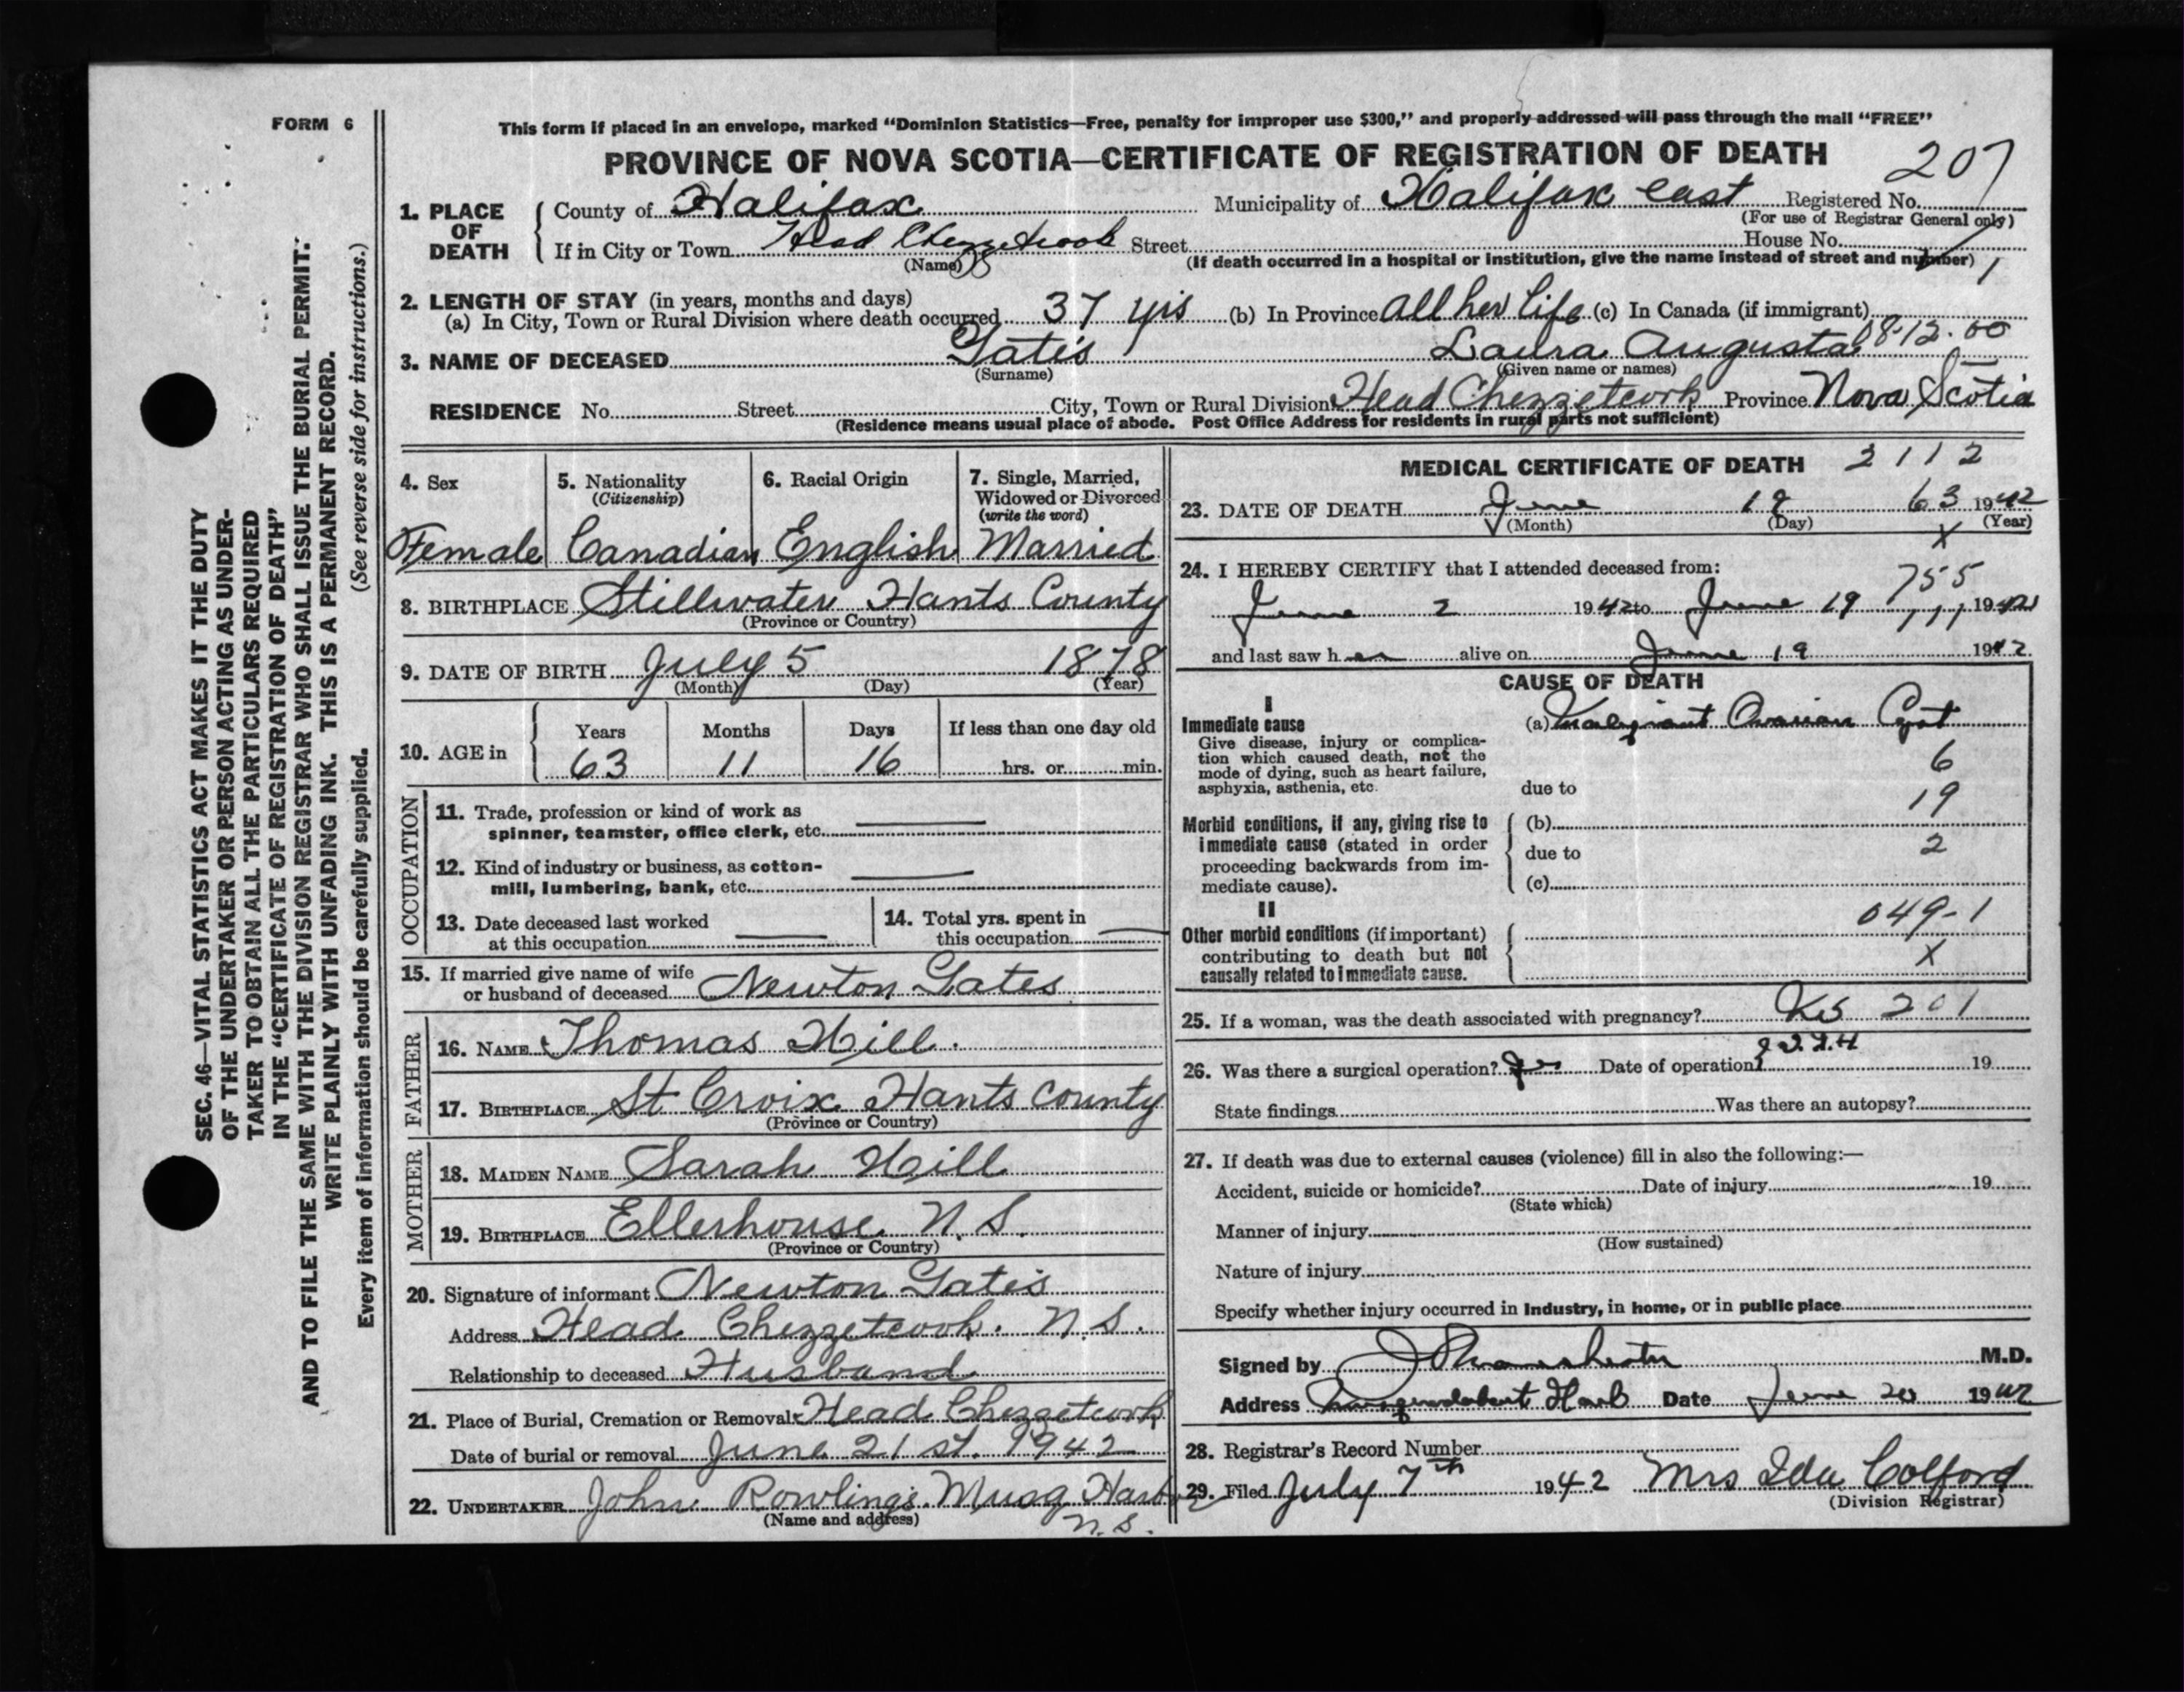 FORM 6
This form if placed in an envelope, marked "Dominion Statistics—Free, penalty for improper use $300," and properly addressed will pass through the mail "FREE"
PROVINCE OF NOVA SCOTIA—CERTIFICATE OF REGISTRATION OF DEATH
207
1. PLACE OF DEATH
County of Halifax Municipality of Halifax east Registered No.
(For use of Registrar General only)
If in City or Town Head Chezzetcook Street House No.
(Name) (If death occurred in a hospital or institution, give the name instead of street and number)
2. LENGTH OF STAY (in years, months and days)
(a) In City, Town or Rural Division where death occurred 37 yrs (b) In Province All her life (c) In Canada (if immigrant)
08-12-00
3. NAME OF DECEASED Gates Laura Augusta
(Surname) (Given name or names)
RESIDENCE No. Street City, Town or Rural Division Head Chezzetcook Province Nova Scotia
(Residence means usual place of abode. Post Office Address for residents in rural parts not sufficient)
4. Sex Female
5. Nationality (Citizenship) Canadian
6. Racial Origin English
7. Single, Married, Widowed or Divorced (write the word) Married
8. BIRTHPLACE Stillwater Hants County
(Province or Country)
9. DATE OF BIRTH July 5 1878
(Month) (Day) (Year)
10. AGE in Years 63 Months 11 Days 16 If less than one day old hrs. or min.
OCCUPATION
11. Trade, profession or kind of work as
spinner, teamster, office clerk, etc.
12. Kind of industry or business, as cotton-
mill, lumbering, bank, etc.
13. Date deceased last worked
at this occupation
14. Total yrs. spent in
this occupation
15. If married give name of wife
or husband of deceased Newton Gates
FATHER
16. NAME Thomas Hill.
17. BIRTHPLACE St Croix Hants County
(Province or Country)
MOTHER
18. MAIDEN NAME Sarah Hill
19. BIRTHPLACE Ellershouse N.S.
(Province or Country)
20. Signature of informant Newton Gates
Address Head Chezzetcook. N.S.
Relationship to deceased Husband
21. Place of Burial, Cremation or Removal Head Chezzetcook
Date of burial or removal June 21 st. 1942
22. UNDERTAKER John Rowlings. Musq Harb
(Name and address) N.S.
MEDICAL CERTIFICATE OF DEATH 2112
23. DATE OF DEATH June 19 63 1942
(Month) (Day) (Year)
X
24. I HEREBY CERTIFY that I attended deceased from:
755
June 2 1942 to June 19 1942
111
and last saw her alive on June 19 1942
CAUSE OF DEATH
I
Immediate cause (a) Malignant Ovarian Cyst
Give disease, injury or complica-
tion which caused death, not the
mode of dying, such as heart failure,
asphyxia, asthenia, etc.
6
due to 19
Morbid conditions, if any, giving rise to
immediate cause (stated in order
proceeding backwards from im-
mediate cause).
(b)
due to 2
(c)
II
049-1
Other morbid conditions (if important)
contributing to death but not
causally related to immediate cause.
X
25. If a woman, was the death associated with pregnancy? 201
26. Was there a surgical operation? Date of operation 19
State findings Was there an autopsy?
27. If death was due to external causes (violence) fill in also the following:—
Accident, suicide or homicide? Date of injury 19
(State which)
Manner of injury
(How sustained)
Nature of injury
Specify whether injury occurred in Industry, in home, or in public place
Signed by M.D.
Address Musquodoboit Harb Date June 20 1942
28. Registrar's Record Number
29. Filed July 7th 1942 Mrs Ida Colford
(Division Registrar)
SEC. 46—VITAL STATISTICS ACT MAKES IT THE DUTY
OF THE UNDERTAKER OR PERSON ACTING AS UNDER-
TAKER TO OBTAIN ALL THE PARTICULARS REQUIRED
IN THE "CERTIFICATE OF REGISTRATION OF DEATH"
AND TO FILE THE SAME WITH THE DIVISION REGISTRAR WHO SHALL ISSUE THE BURIAL PERMIT.
WRITE PLAINLY WITH UNFADING INK. THIS IS A PERMANENT RECORD.
Every item of information should be carefully supplied. (See reverse side for instructions.)